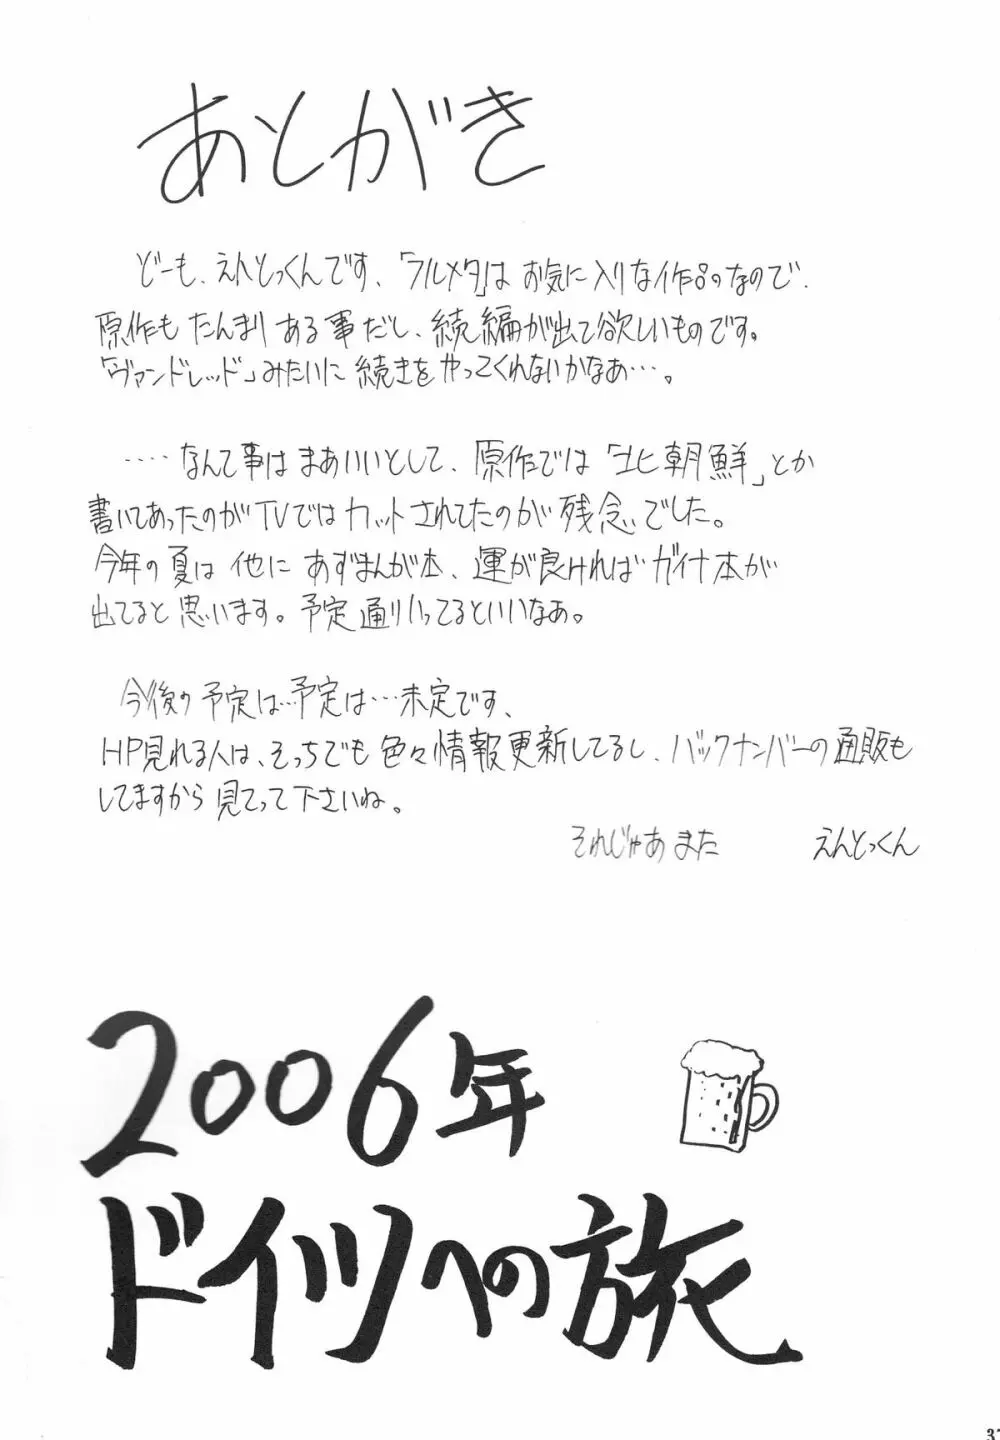 あとがき
どーも、えんとっくんです、「フルメタ」は お気に入りな作品のなので、
原作も たんまり ある事だし、続編が出て欲しいものです。
「ヴァンドレッド」みたいに 続きを やってくれないかなぁ…。
‥‥なんて事は まあいいとして、原作では「北朝鮮」とか
書いてあったのがTVでは カットされてたのが 残念でした。
今年の夏は 他に あずまんが本、運が良ければ ガイナ本が
出てると 思います。予定通りいってるといいなぁ。
今後の予定は‥予定は…未定です、
HP見れる人は、そっちでも 色々情報更新してるし、バックナンバーの通販も
してますから 見てって下さいね。
それじゃあ また えんとっくん
2006年
ドイツへの旅
37